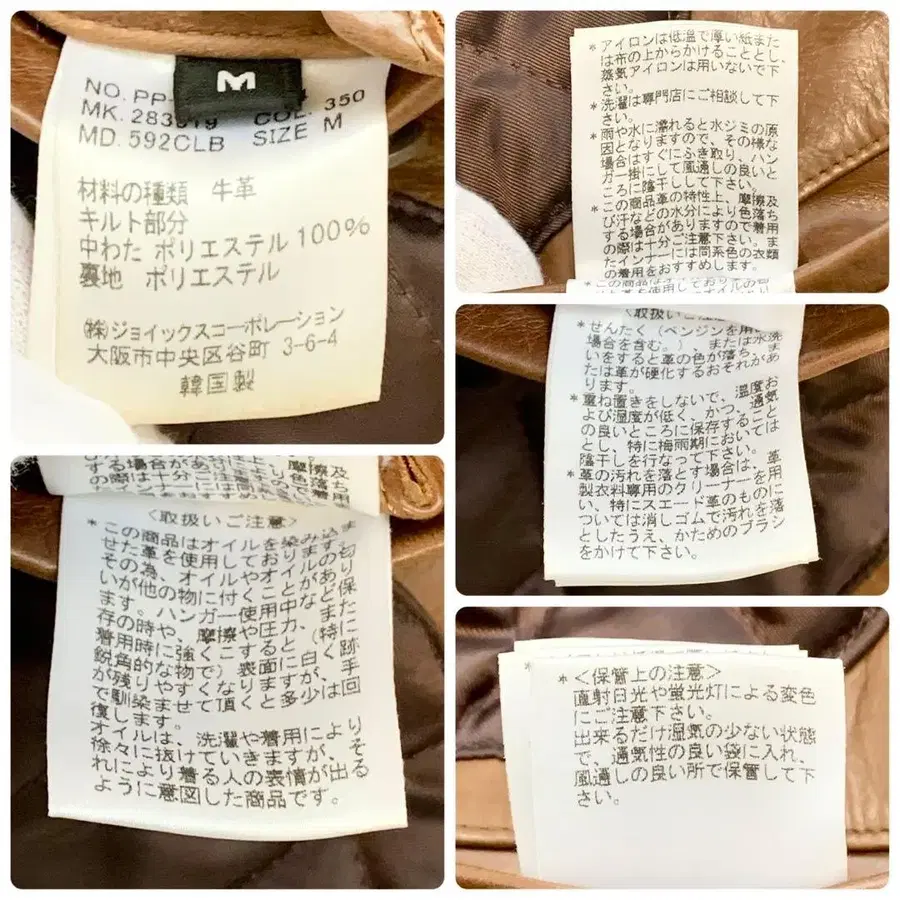 M
NO. PP-
MK. 283 COL. 350
MD. 592CLB SIZE M
材料の種類 牛革
キルト部分
中わた ポリエステル 100%
裏地 ポリエステル
㈱ジョイックスコーポレーション
大阪市中央区谷町 3-6-4
韓国製
*アイロンは低温で厚い紙また
は布の上からかけることとし、
蒸気アイロンは用いないで下
さい。
*洗濯は専門店にご相談して下
さい。
*雨や水に濡れると水ジミの原
因となりますので、その様な
場合はすぐにふき取り、ハン
ガー掛にして風通しの良いと
ころに陰干しして下さい。
*この商品革の特性上、摩擦及
び汗などの水分により色落ち
する場合がありますので着用
の際は十分ご注意下さい。ま
たインナーには同系色の衣類
の着用をおすすめします。
〈取扱いご注意〉
*せんたく(ベンジンを用
場合を含む。)、または水洗
いをすると革の色が落ち、ま
たは革が硬化するおそれがあ
ります。
*重ね置きをしないで、温度お
よび湿度が低く、かつ、通気
の良いところに保存すること
とし、特に梅雨期においては
陰干しを行なって下さい。
*革の汚れを落とす場合は、革
製衣料専用のクリーナーを用
い、特にスエード革のものに
ついては消しゴムで汚れを落
としたうえ、かためのブラシ
をかけて下さい。
〈取扱いご注意〉
*この商品はオイルを染み込ま
せた革を使用しております。
その為、オイルやオイルの匂
いが他の物に付くことがあり
ます。ハンガー使用中など保
存の時や、摩擦や圧力、また
着用時に強くこすると(特に
鋭角的な物で)表面に白く跡
が残りやすくなりますが、手
で馴染ませて頂くと多少は回
復します。
オイルは、洗濯や着用により
徐々に抜けていきますが、そ
れにより着る人の表情が出る
ように意図した商品です。
*〈保管上の注意〉
直射日光や蛍光灯による変色
にご注意下さい。
出来るだけ湿気の少ない状態
で、通気性の良い袋に入れ、
風通しの良い所で保管して下
さい。